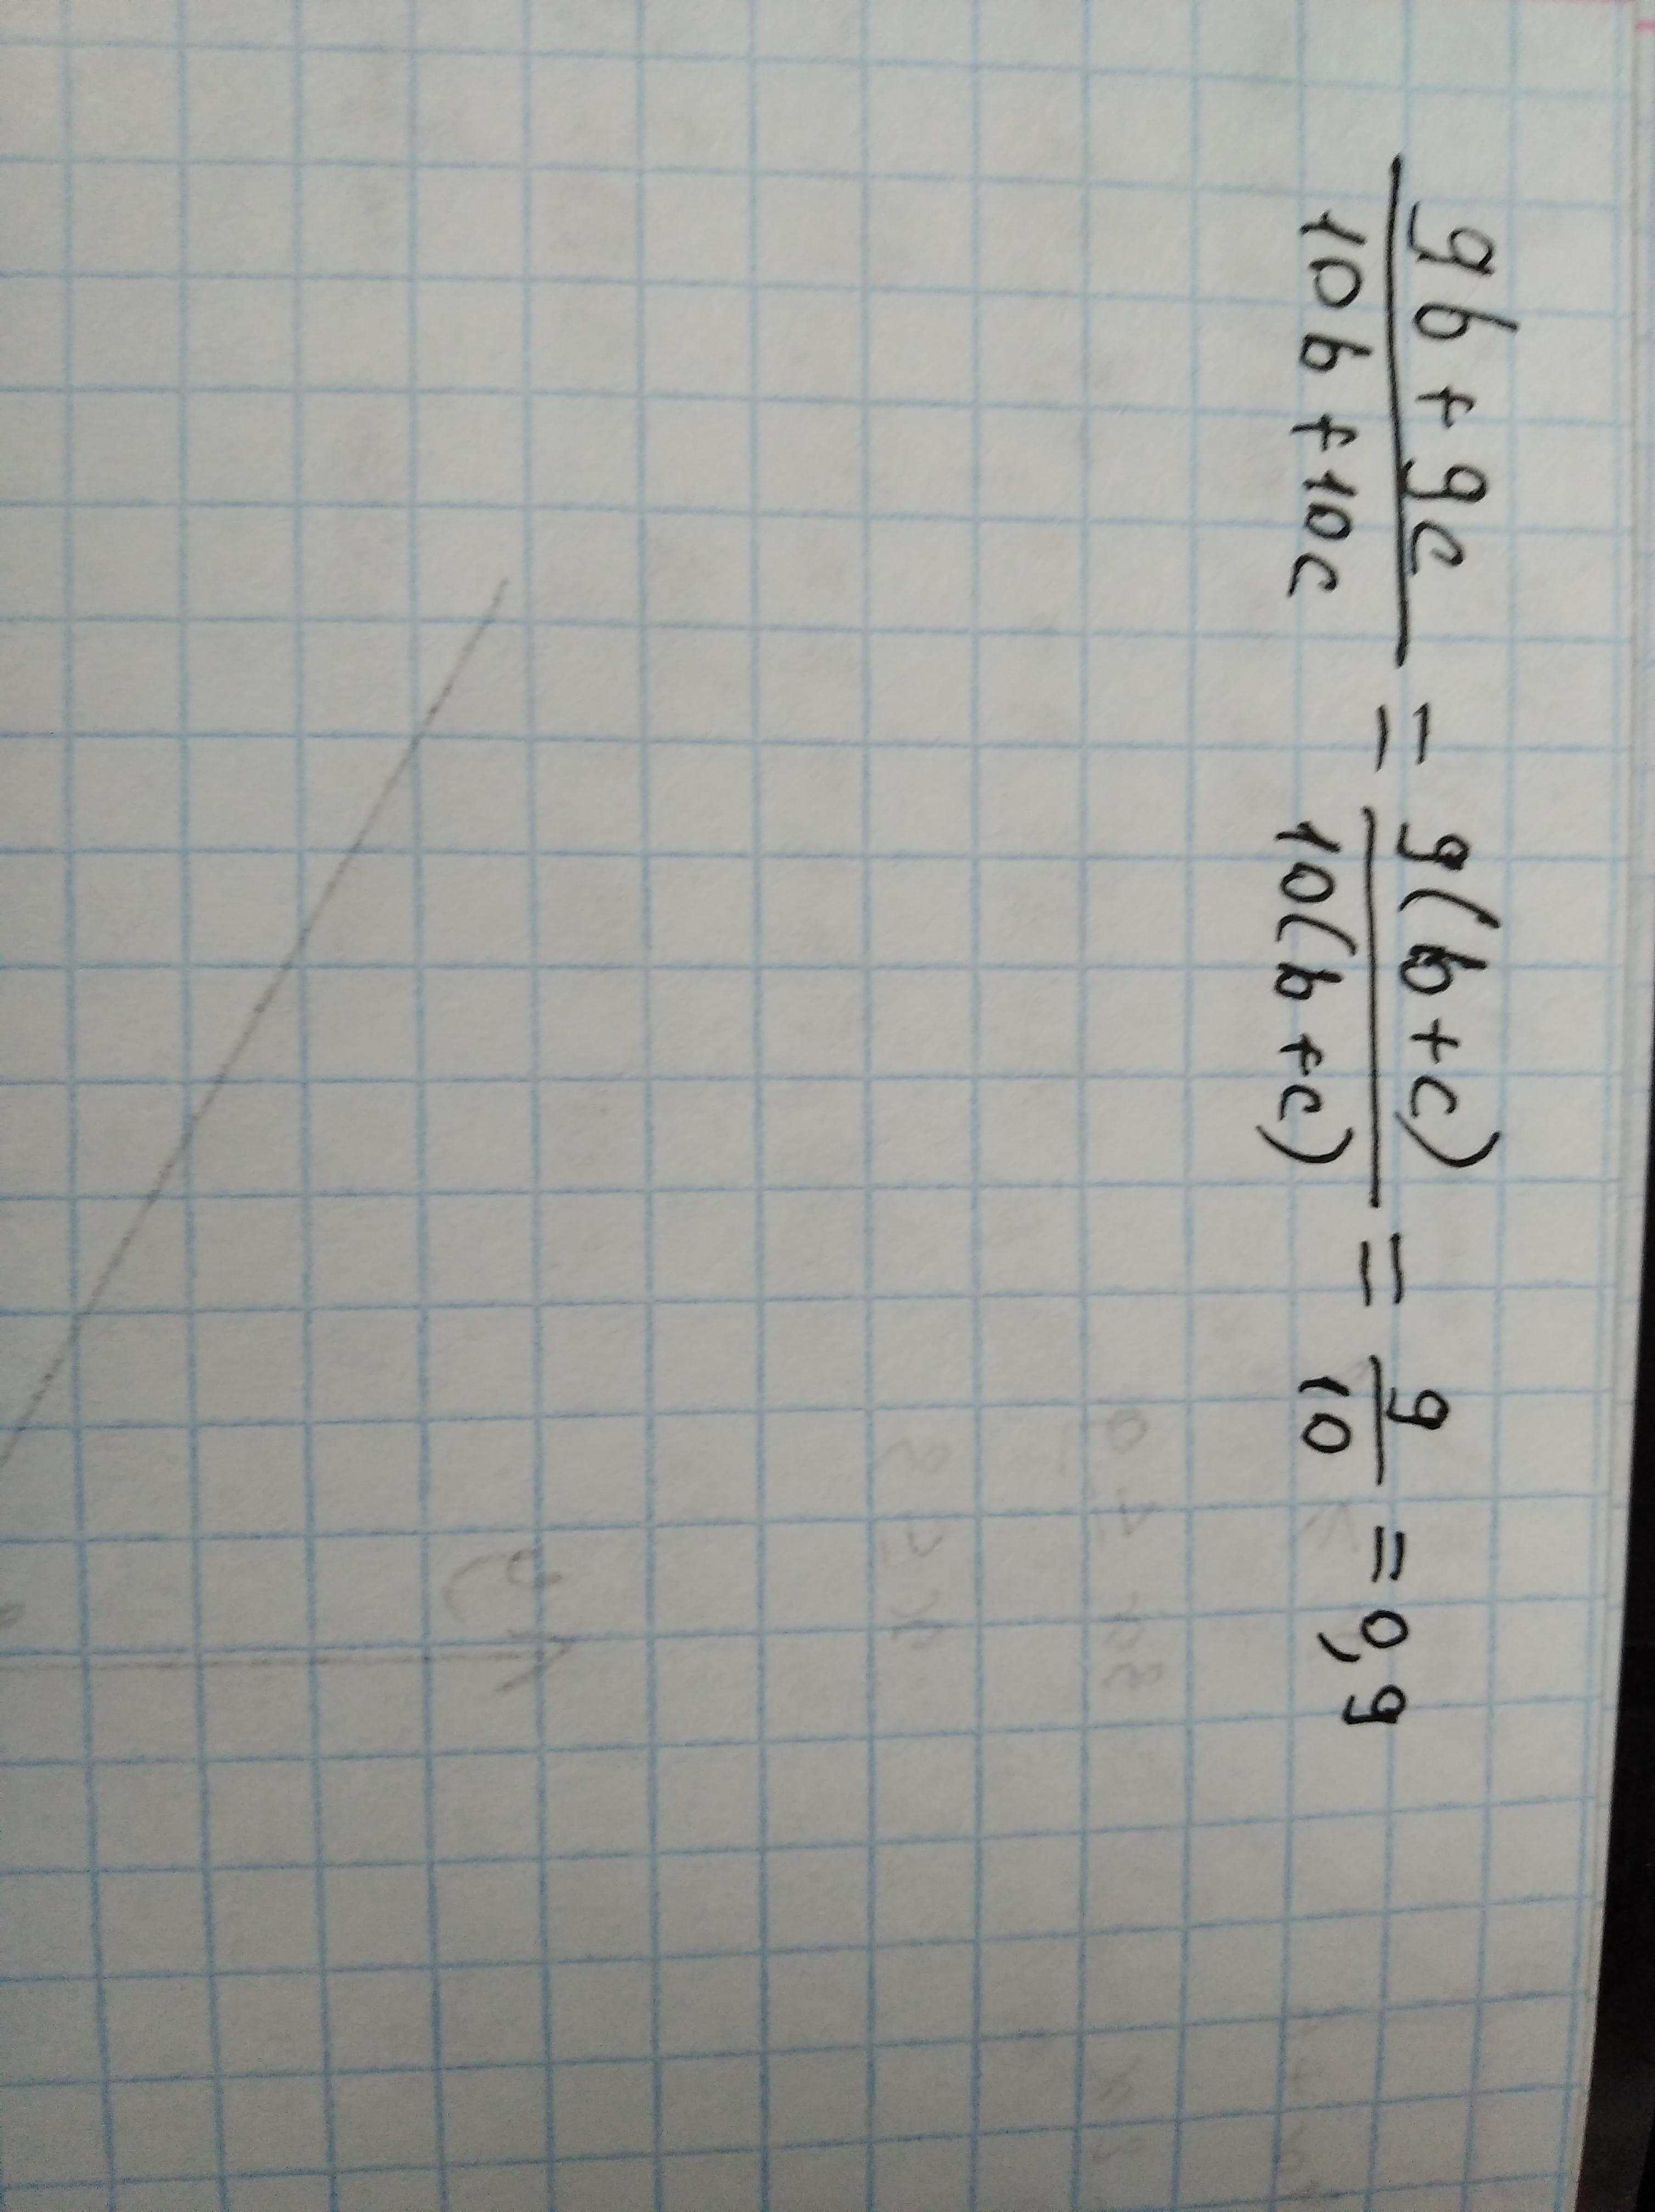 (9b + 9c)/(10b + 10c) = 9(b + c)/10(b + c) = 9/10 = 0,9